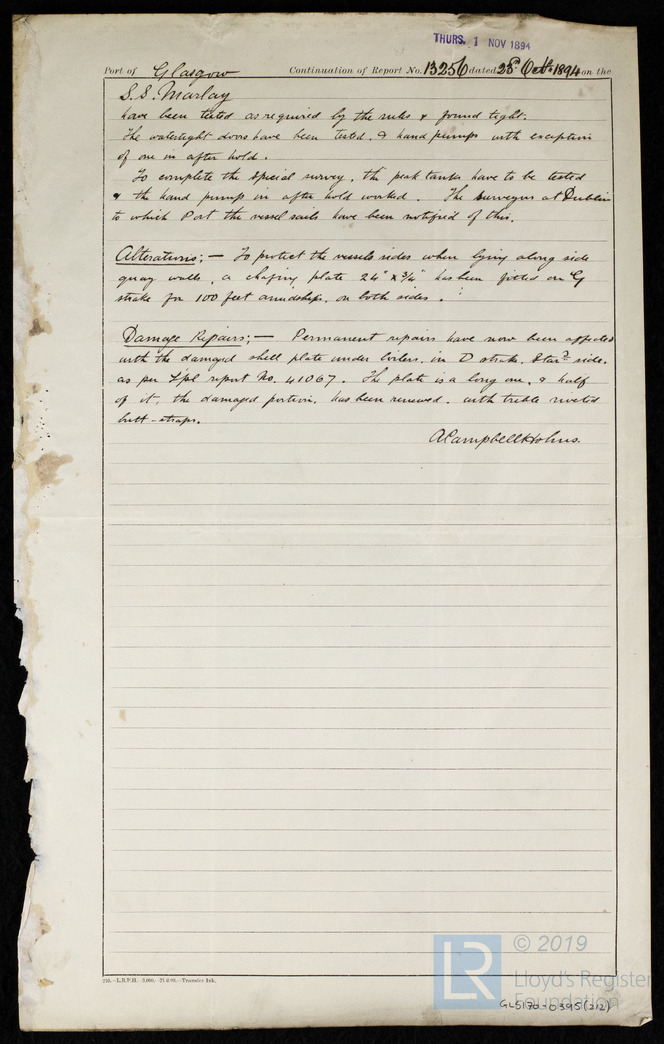 THURS. 1 NOV 1894
Port of Glasgow Continuation of Report No. 13256 dated 25th Octr. 1894 on the
S.S. Marlay
have been tested as required by the rules & found tight.
The watertight doors have been tested, & hand pumps with exception
of one in after hold.
To complete the special survey, the peak tanks have to be tested
& the hand pump in after hold worked. The surveyors at Dublin
to which Port the vessel sails have been notified of this.
Alterations; — To protect the vessels sides when lying along side
quay walls, a chafing plate 24" x 3/4" has been fitted on G
strake for 100 feet amidships, on both sides.
Damage Repairs; — Permanent repairs have now been effected
with the damaged shell plate under boilers, in D strake, Starbd side.
as per Lpl report No. 41067. The plate is a long one, & half
of it, the damaged portion, has been renewed, with treble riveted
butt-straps.
A Campbell Holms.
210.—L.R.P.H.—3,000.—Transfer Ink.
LR
© 2019
Lloyd's Register
Foundation
GLS170-0395(212)